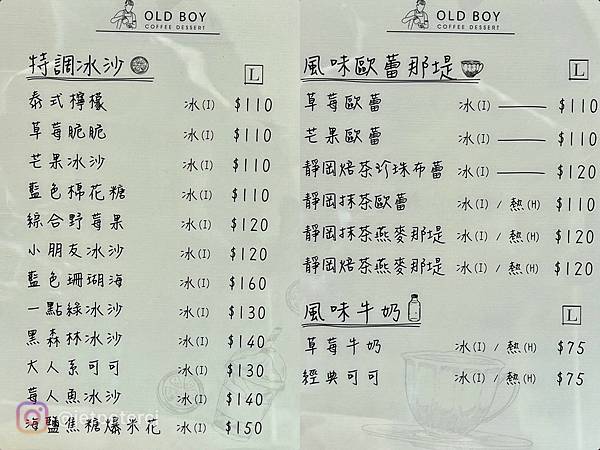 OLD BOY
COFFEE DESSERT
特調冰沙 L
泰式檸檬 冰(I) $110
草莓脆脆 冰(I) $110
芒果冰沙 冰(I) $110
藍色棉花糖 冰(I) $110
綜合野莓果 冰(I) $120
小朋友冰沙 冰(I) $120
藍色珊瑚海 冰(I) $160
一點綠冰沙 冰(I) $130
黑森林冰沙 冰(I) $140
大人系可可 冰(I) $130
莓人魚冰沙 冰(I) $140
海鹽焦糖爆米花 冰(I) $150
@jetpeterej
OLD BOY
COFFEE DESSERT
風味歐蕾那堤 L
草莓歐蕾 冰(I) —— $110
芒果歐蕾 冰(I) —— $110
靜岡焙茶珍珠布蕾 冰(I) —— $120
靜岡抹茶歐蕾 冰(I) / 熱(H) $110
靜岡抹茶燕麥那堤 冰(I) / 熱(H) $120
靜岡焙茶燕麥那堤 冰(I) / 熱(H) $120
風味牛奶 L
草莓牛奶 冰(I) / 熱(H) $75
經典可可 冰(I) / 熱(H) $75